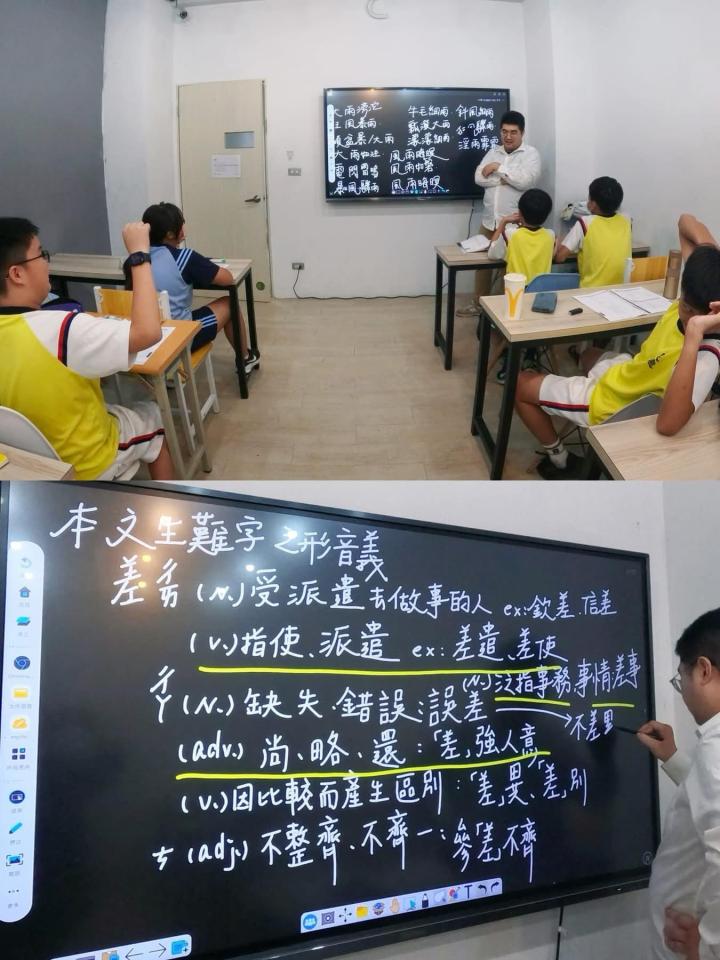 大雨滂沱
狂風暴雨
傾盆暴/大雨
大雨如注
電閃雷鳴
暴風驟雨
牛毛細雨
瓢潑大雨
濛濛細雨
風雨晦暝
風雨如磐
風雨晦暝
斜風細雨
和風驟雨
淫雨霏霏
本文生難字之形音義
差 ㄔㄞ (N.) 受派遣去做事的人 ex: 欽差、信差
(v.) 指使、派遣 ex: 差遣、差使
(N.) 泛指事務、事情 差事
ㄔㄚ (N.) 缺失、錯誤:誤差
不差累
(adv.) 尚、略、還:「差」強人意
(v.) 因比較而產生區別:「差」異、「差」別
ㄘ (adj.) 不整齊、不齊一:參「差」不齊